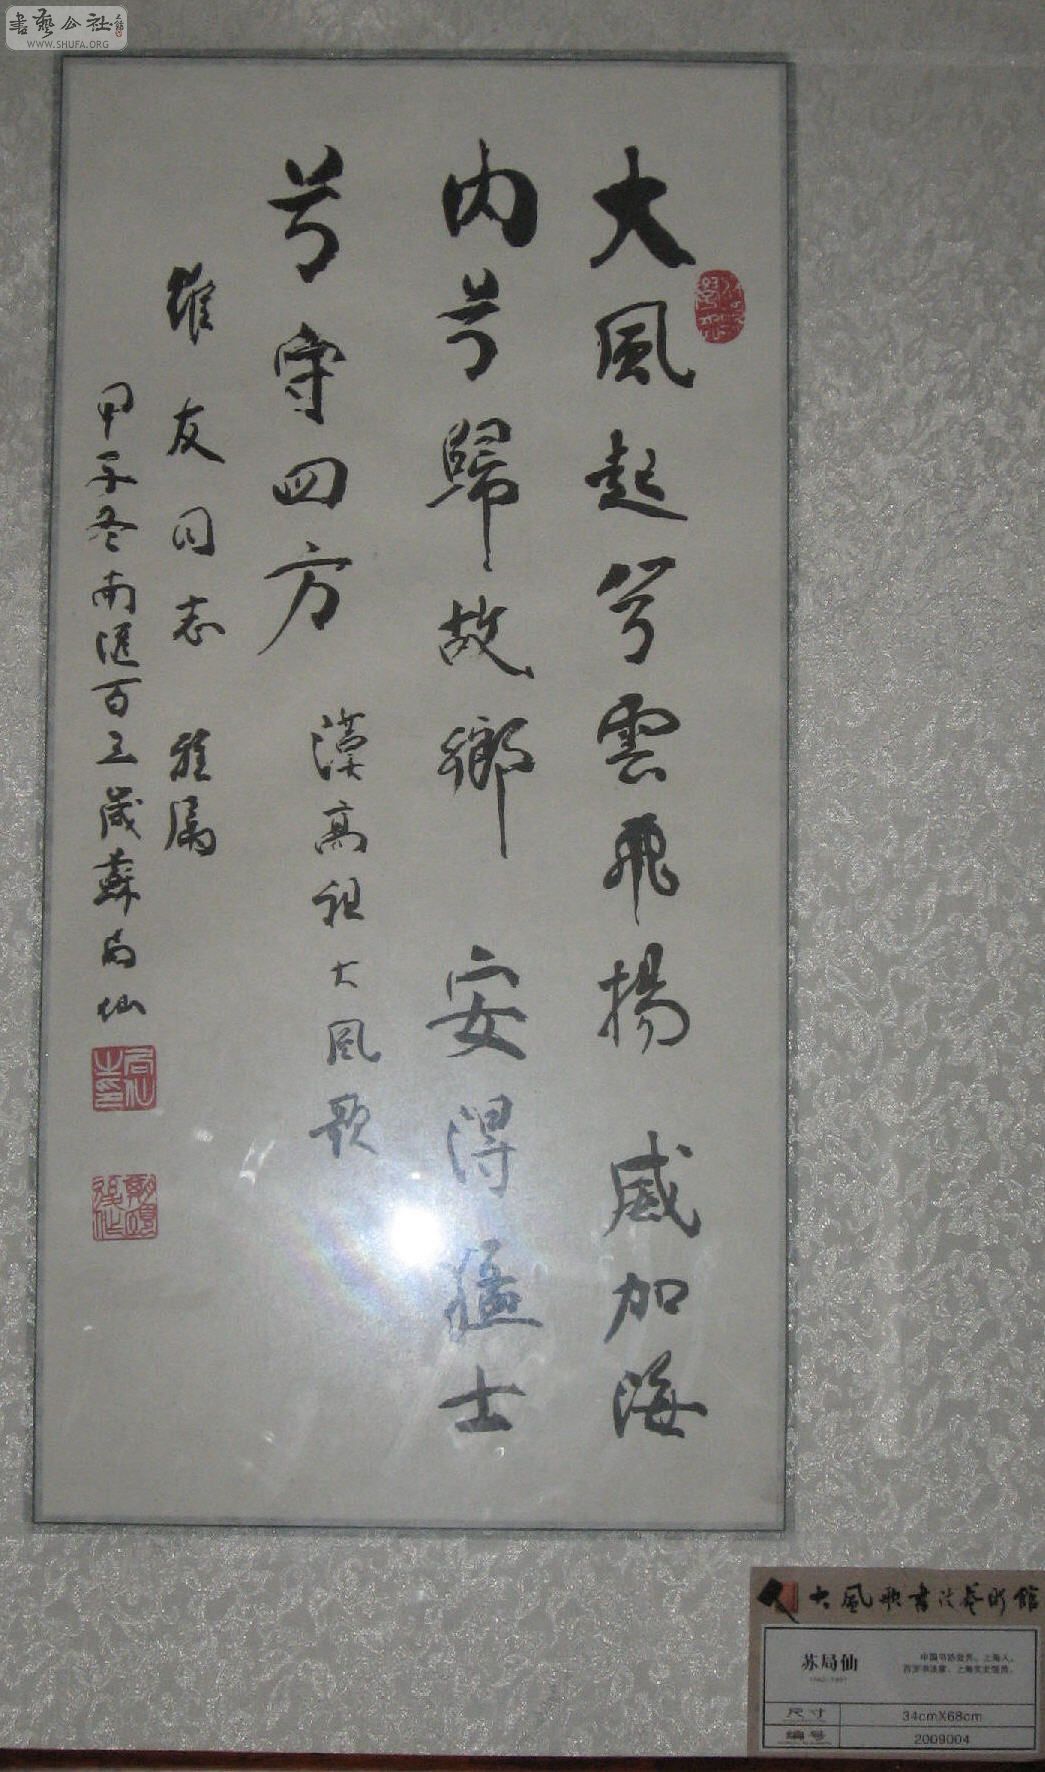 書藝公社
WWW.SHUFA.ORG
大風起兮雲飛揚威加海
内兮歸故鄉安得猛士
兮守四方
漢高祖大風歌
雄友同志雅属
甲子冬南匯百三歲蘇局仙
局仙之印
大風歌書法藝術館
苏局仙
中国书协会员。上海人。
百岁书法家、上海文史馆员。
尺寸
34cmX68cm
编号
2009004